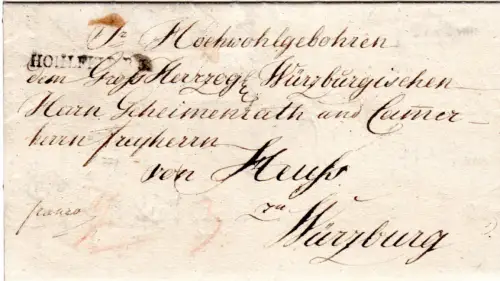 Sr Hochwohlgebohren
HOHLFELD
dem Gros Herzogl Würzburgischen
Herrn Geheimenrath und Camer-
herrn freyherrn
von Heuß
zu
franco
Würzburg